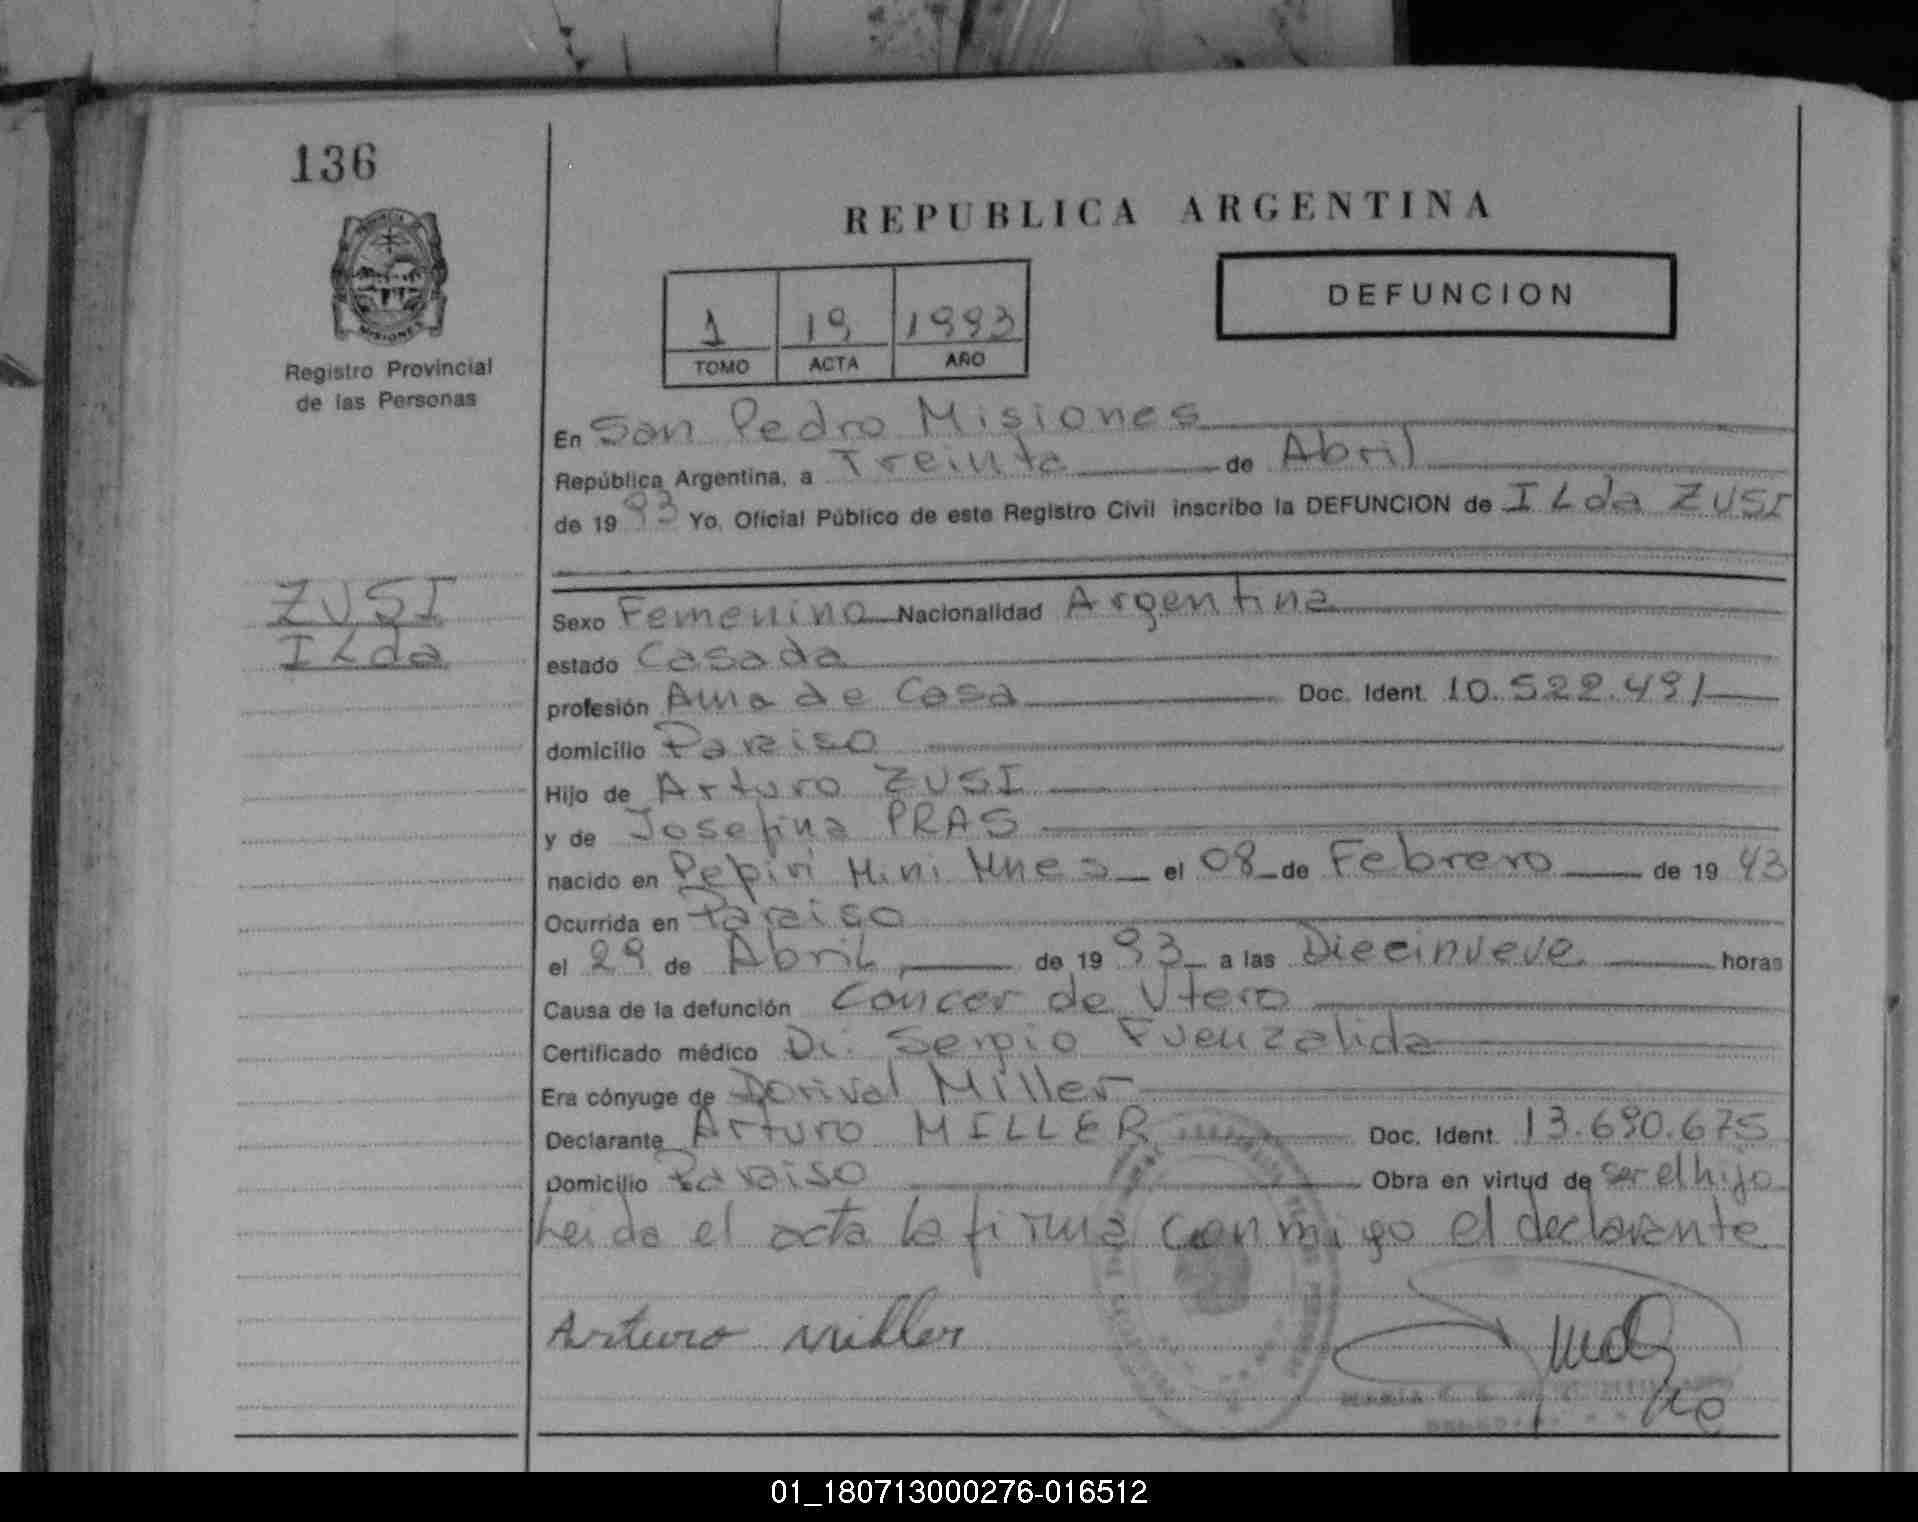 136
REPUBLICA ARGENTINA
MISIONES
Registro Provincial
de las Personas
1 19 1993
TOMO ACTA AÑO
DEFUNCION
En San Pedro Misiones
República Argentina, a Treinta de Abril
de 1993 Yo, Oficial Público de este Registro Civil inscribo la DEFUNCION de ILda ZUSI
ZUSI
ILda
Sexo Femenino Nacionalidad Argentina
estado Casada
profesión Ama de Casa Doc. Ident. 10.522.491
domicilio Paraiso
Hijo de Arturo ZUSI
y de Josefina PRAS
nacido en Pepiri Mini Mnes el 08 de Febrero de 1943
Ocurrida en Paraiso
el 29 de Abril de 1993 a las Diecinueve horas
Causa de la defunción Cáncer de Utero
Certificado médico Dr. Sergio Fuenzalida
Era cónyuge de Dorival Miller
Declarante Arturo MILLER Doc. Ident. 13.690.675
Domicilio Paraiso Obra en virtud de ser el hijo
Leida el acta la firma conmigo el declarante
Arturo Miller
01_180713000276-016512